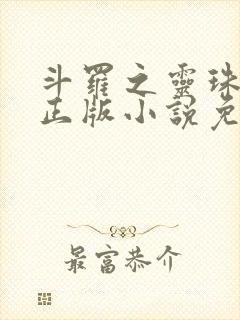 斗羅之靈珠
正版小說免
最富恭介